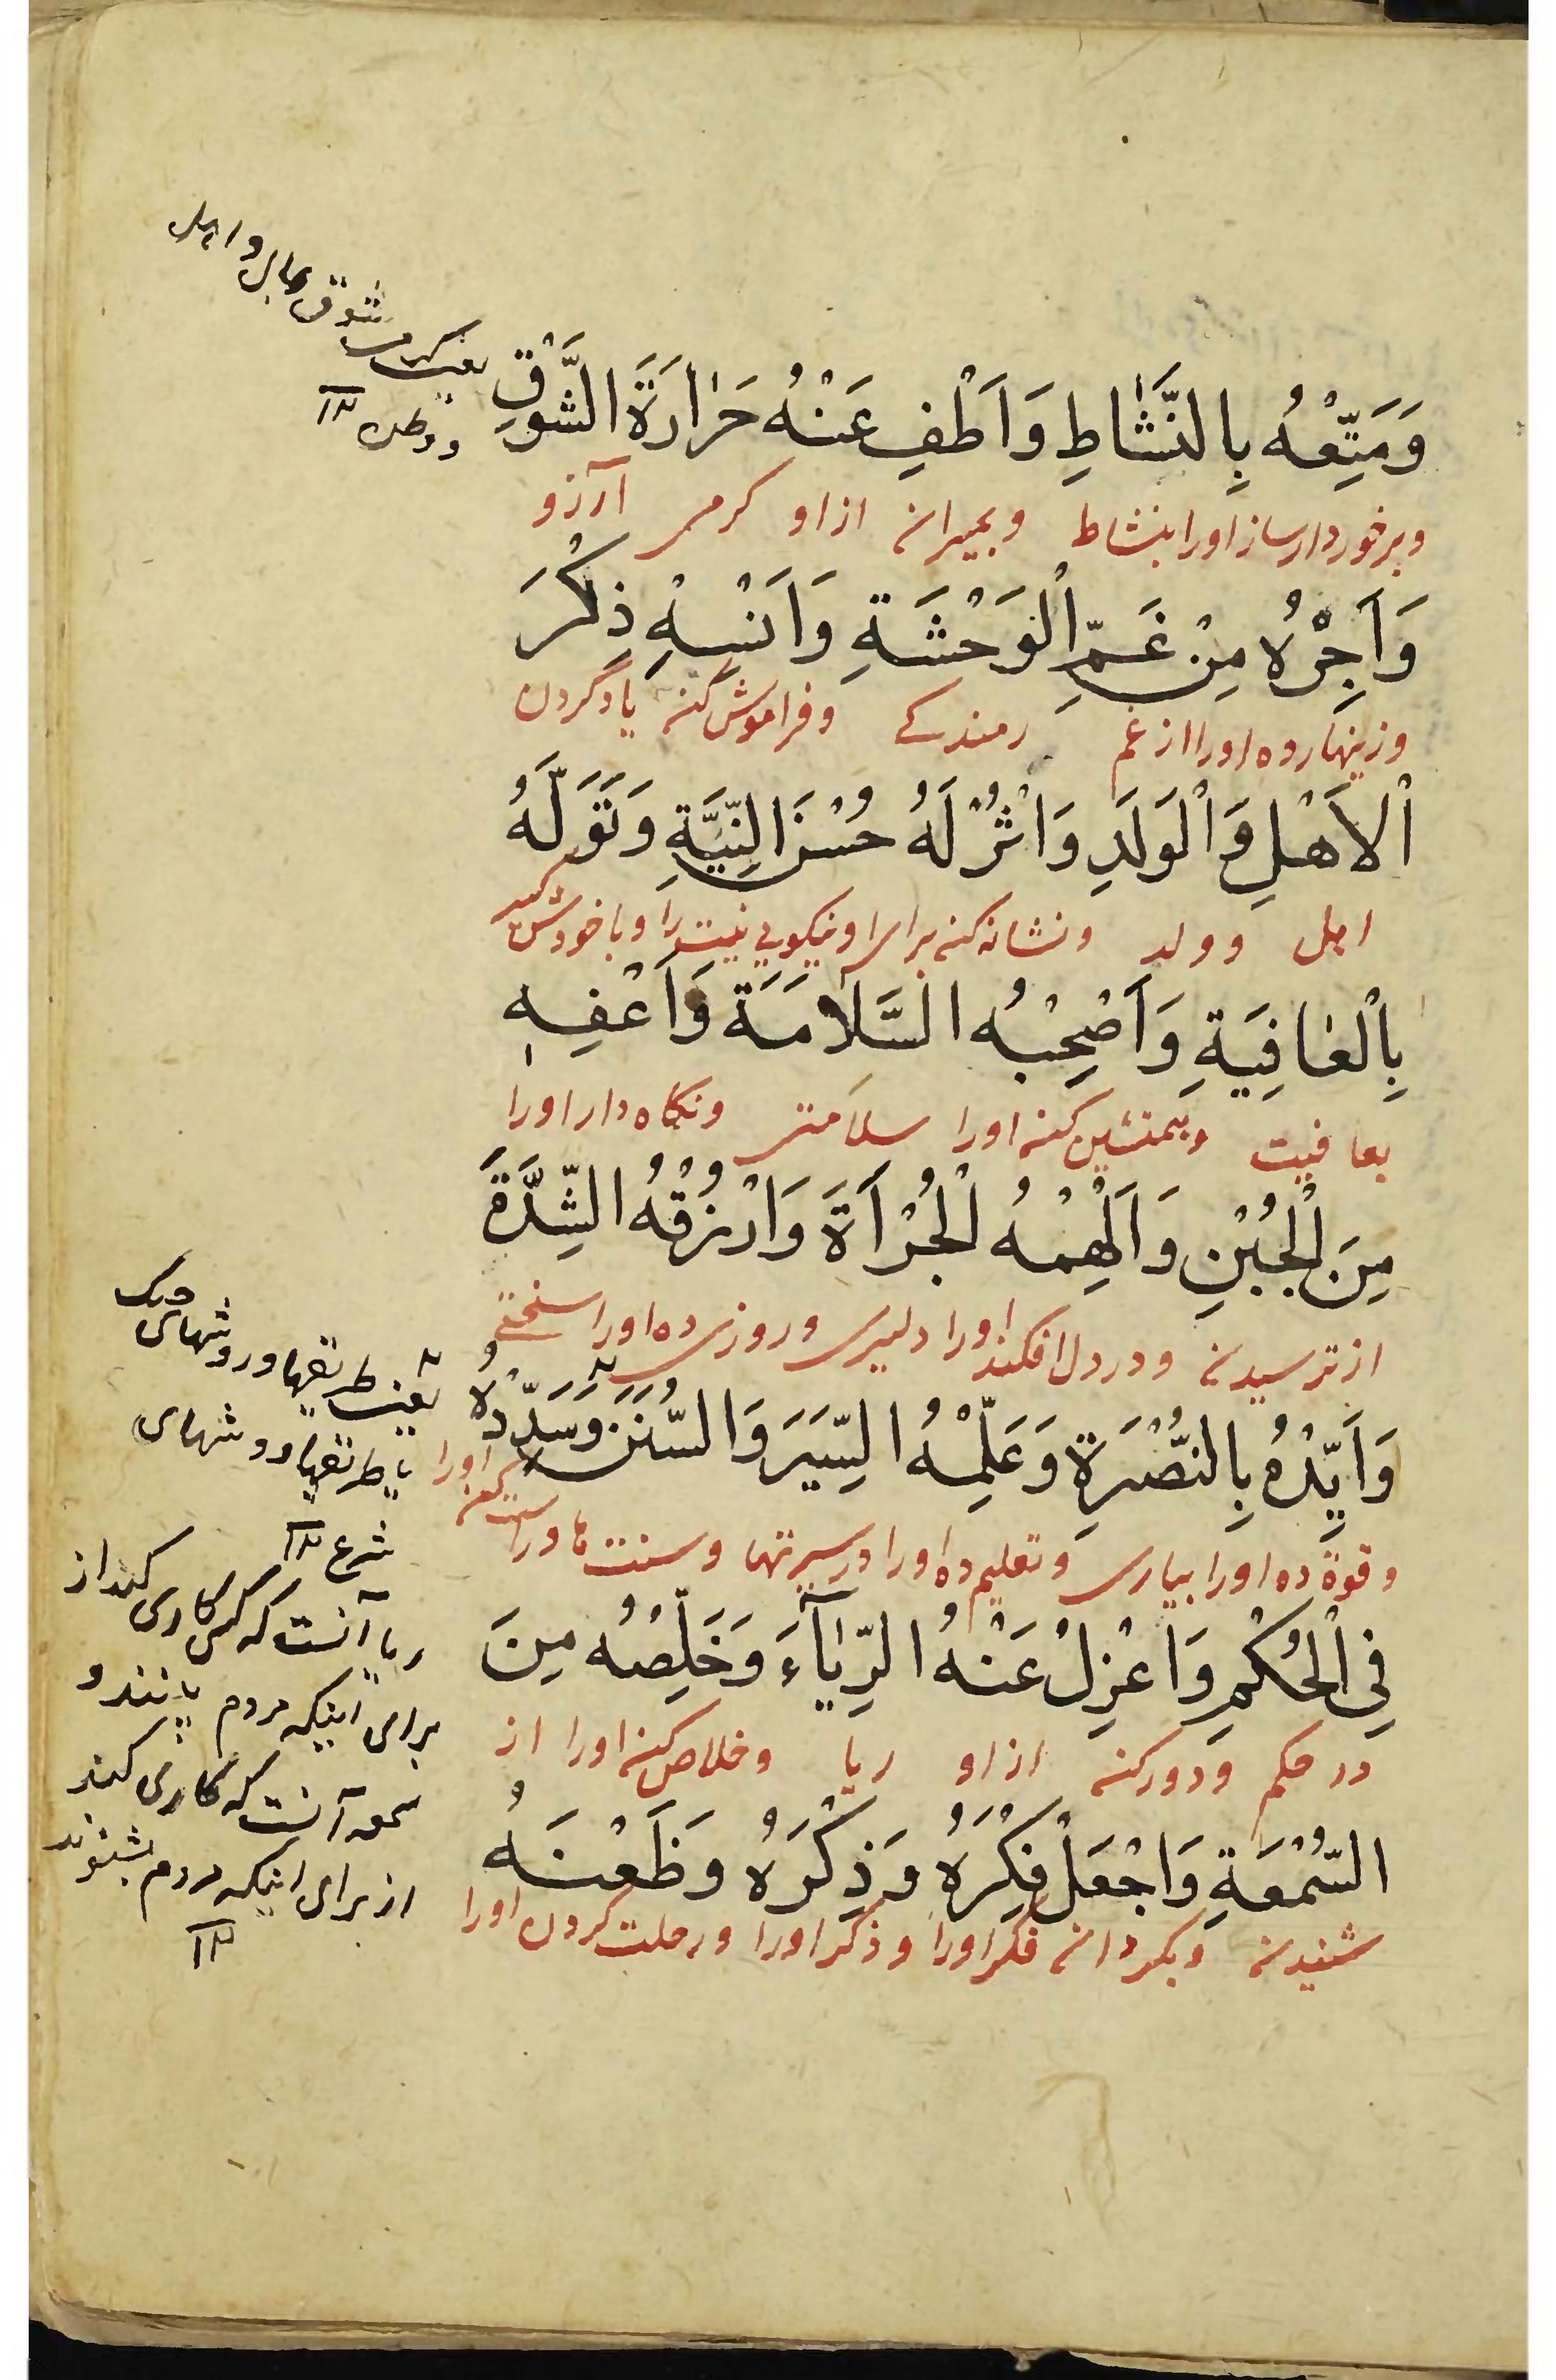 وَمَتِّعْهُ بِالنَّشَاطِ وَاَطْفِ عَنْهُ حَرَارَةَ الشَّوْقِ
وبرخوردار ساز اورا بنشاط وبمیران ازاو کرمی آرزو
وَاَجِرْهُ مِنْ غَمِّ الْوَحْشَةِ وَاَنْسِهِ ذِكْرَ
وزینهار ده اورا از غم رمندکے وفراموش کن یاد گردن
الْاَهْلِ وَالْوَلَدِ وَاْثُرْ لَهُ حُسْنَ النِّيَّةِ وَتَوَلَّهُ
اهل وولد ونشانه کن برای او نیکویی نیت را وباخودش کیر
بِالْعَافِيَةِ وَاَصْحِبْهُ السَّلَامَةَ وَاَعْفِهِ
بعافیت وهمنشین کن اورا سلامتی ونکاه دار اورا
مِنَ الْجُبْنِ وَاَلْهِمْهُ الْجُرْاَةَ وَارْزُقْهُ الشِّدَّةَ
از ترسیدن ودر دل افکند اورا دلیری وروزی ده اورا سختے
وَاَيِّدْهُ بِالنُّصْرَةِ وَعَلِّمْهُ السِّيَرَ وَالسُّنَنَ وَسَدِّدْهُ
وقوة ده اورا بیاری وتعلیم ده اورا در سیرتها وسنت ها وراست کن اورا
فِي الْحُكْمِ وَاعْزِلْ عَنْهُ الرِّيَآءَ وَخَلِّصْهُ مِنَ
در حکم ودور کن ازاو ریا وخلاص کن اورا از
السُّمْعَةِ وَاجْعَلْ فِكْرَهُ وَذِكْرَهُ وَظَعْنَهُ
شنیدن وبکردان فکر اورا وذکر اورا ورحلت گردن اورا
شوق مال واهل
ووطن ١٢
یعنی طریقها وروشهای جنک
یا طریقها وروشهای
شرع ١٢
ریا آنست که کسی کاری کند از
برای اینکه مردم بینند و
سمعه آنست که کاری کند
از برای اینکه مردم بشنوند
١٢